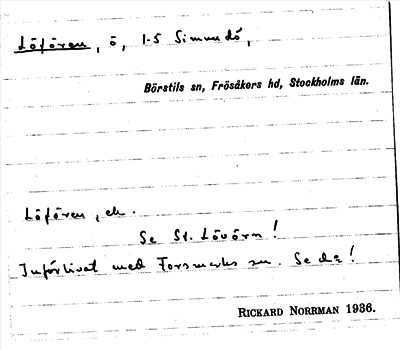 Löfören, ö, 1-5 Simundö,
Börstils sn, Frösåkers hd, Stockholms län.
Löfören, ek.
Se St. Lövörn!
Införlivat med Forsmarks sn. Se då!
RICKARD NORRMAN 1936.